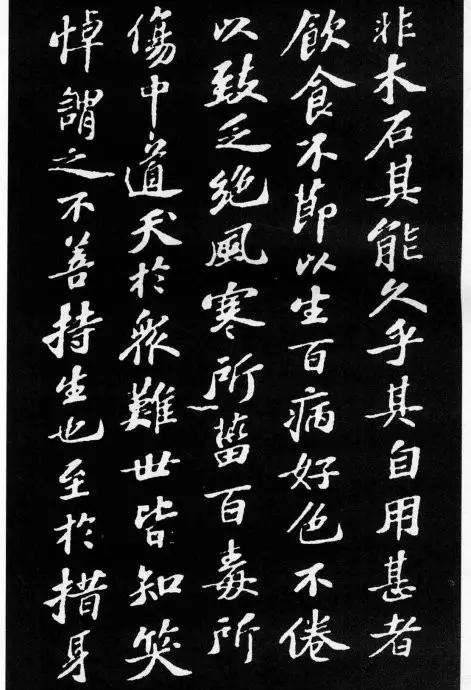 非木石其能久乎其自用甚者
飲食不節以生百病好色不倦
以致乏絶風寒所菑百毒所
傷中道夭於衆難世皆知笑
悼謂之不善持生也至於措身